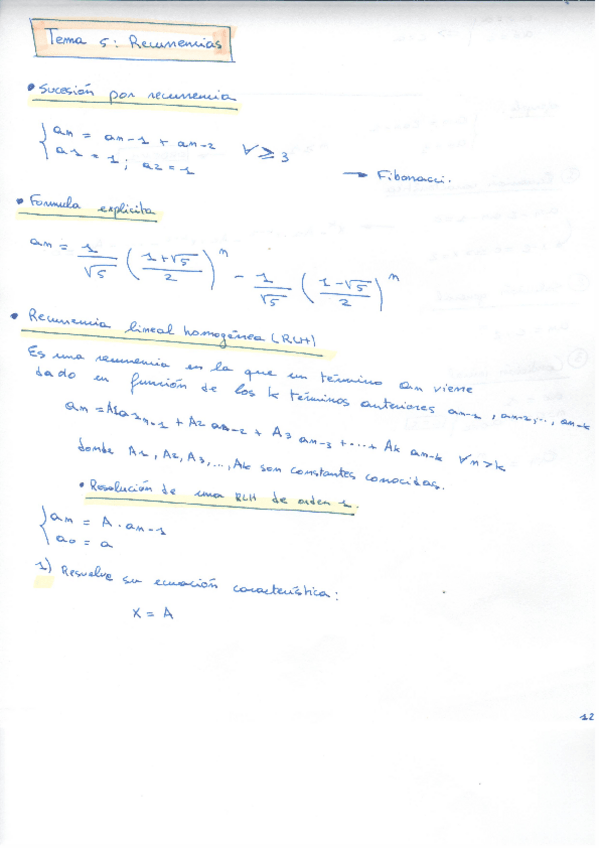 Tema 5: Recurrencias
• Sucesión por recurrencia
{ an = an-1 + an-2 ∀ ≥ 3
a1 = 1; a2 = 1
→ Fibonacci.
• Formula explicita
an = 1/√5 ( (1+√5)/2 )^n - 1/√5 ( (1-√5)/2 )^n
• Recurrencia lineal homogénea (RLH)
Es una recurrencia en la que un término an viene
dado en función de los k términos anteriores an-1, an-2,..., an-k
an = A1an-1 + A2 an-2 + A3 an-3 +...+ Ak an-k ∀n>k
donde A1, A2, A3,..., Ak son constantes conocidas.
• Resolución de una RLH de orden 1.
{ an = A·an-1
a0 = a
1) Resuelve su ecuación característica:
X = A
12